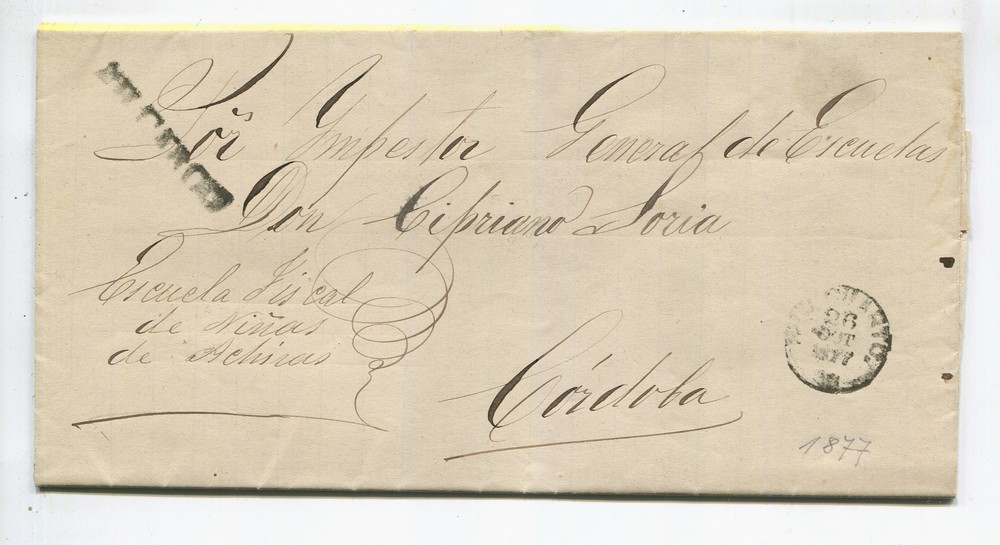 Sor Ynspector General de Escuelas
Don Cipriano Soria
Escuela Fiscal
de Niñas
de Achiras
Córdoba
RIO CUARTO
26
OCT
1877
1877